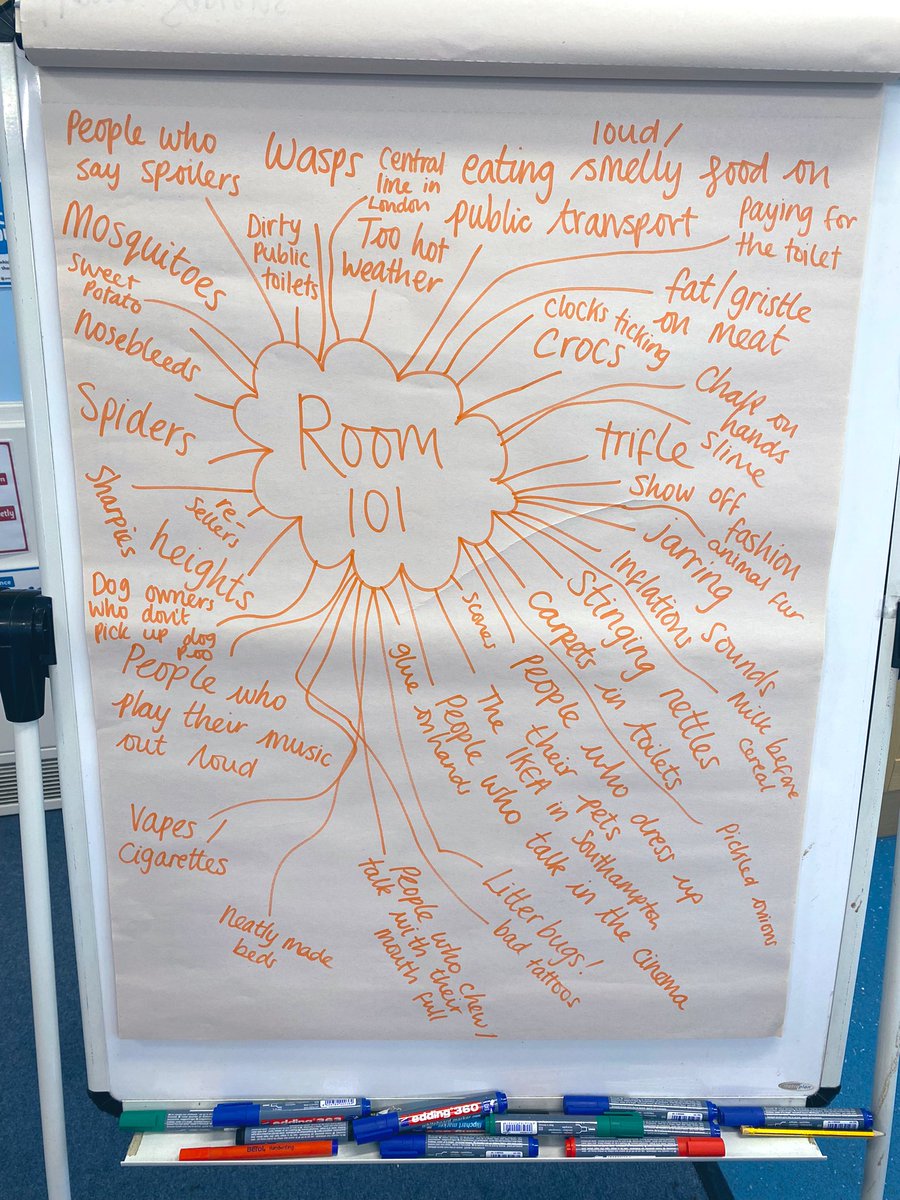 People who
say spoilers
Wasps
Central
line in
London
loud/
eating smelly food on
public transport
Dirty
Public
toilets
Too hot
weather
Paying for
the toilet
Mosquitoes
Sweet
Potato
Nosebleeds
fat/gristle
on meat
Clocks ticking
Crocs
Chalk on
hands
Spiders
Room
101
trifle
slime
show off
fashion
Sharpies
re-
sellers
heights
animal fur
Jarring
sounds
Inflations
Dog owners
who don't
pick up dog
poo
Milk before
cereal
Stinging nettles
Carpets in toilets
scones
People who
play their music
out loud
People who dress up
their pets
The IKEA in Southampton
People who talk in the cinema
glue
on hands
Pickled onions
Vapes/
Cigarettes
Neatly made
beds
People who chew/
talk with their
mouth full
Litter bugs!
bad tattoos
edding 360
edding 360
Berol Handwriting